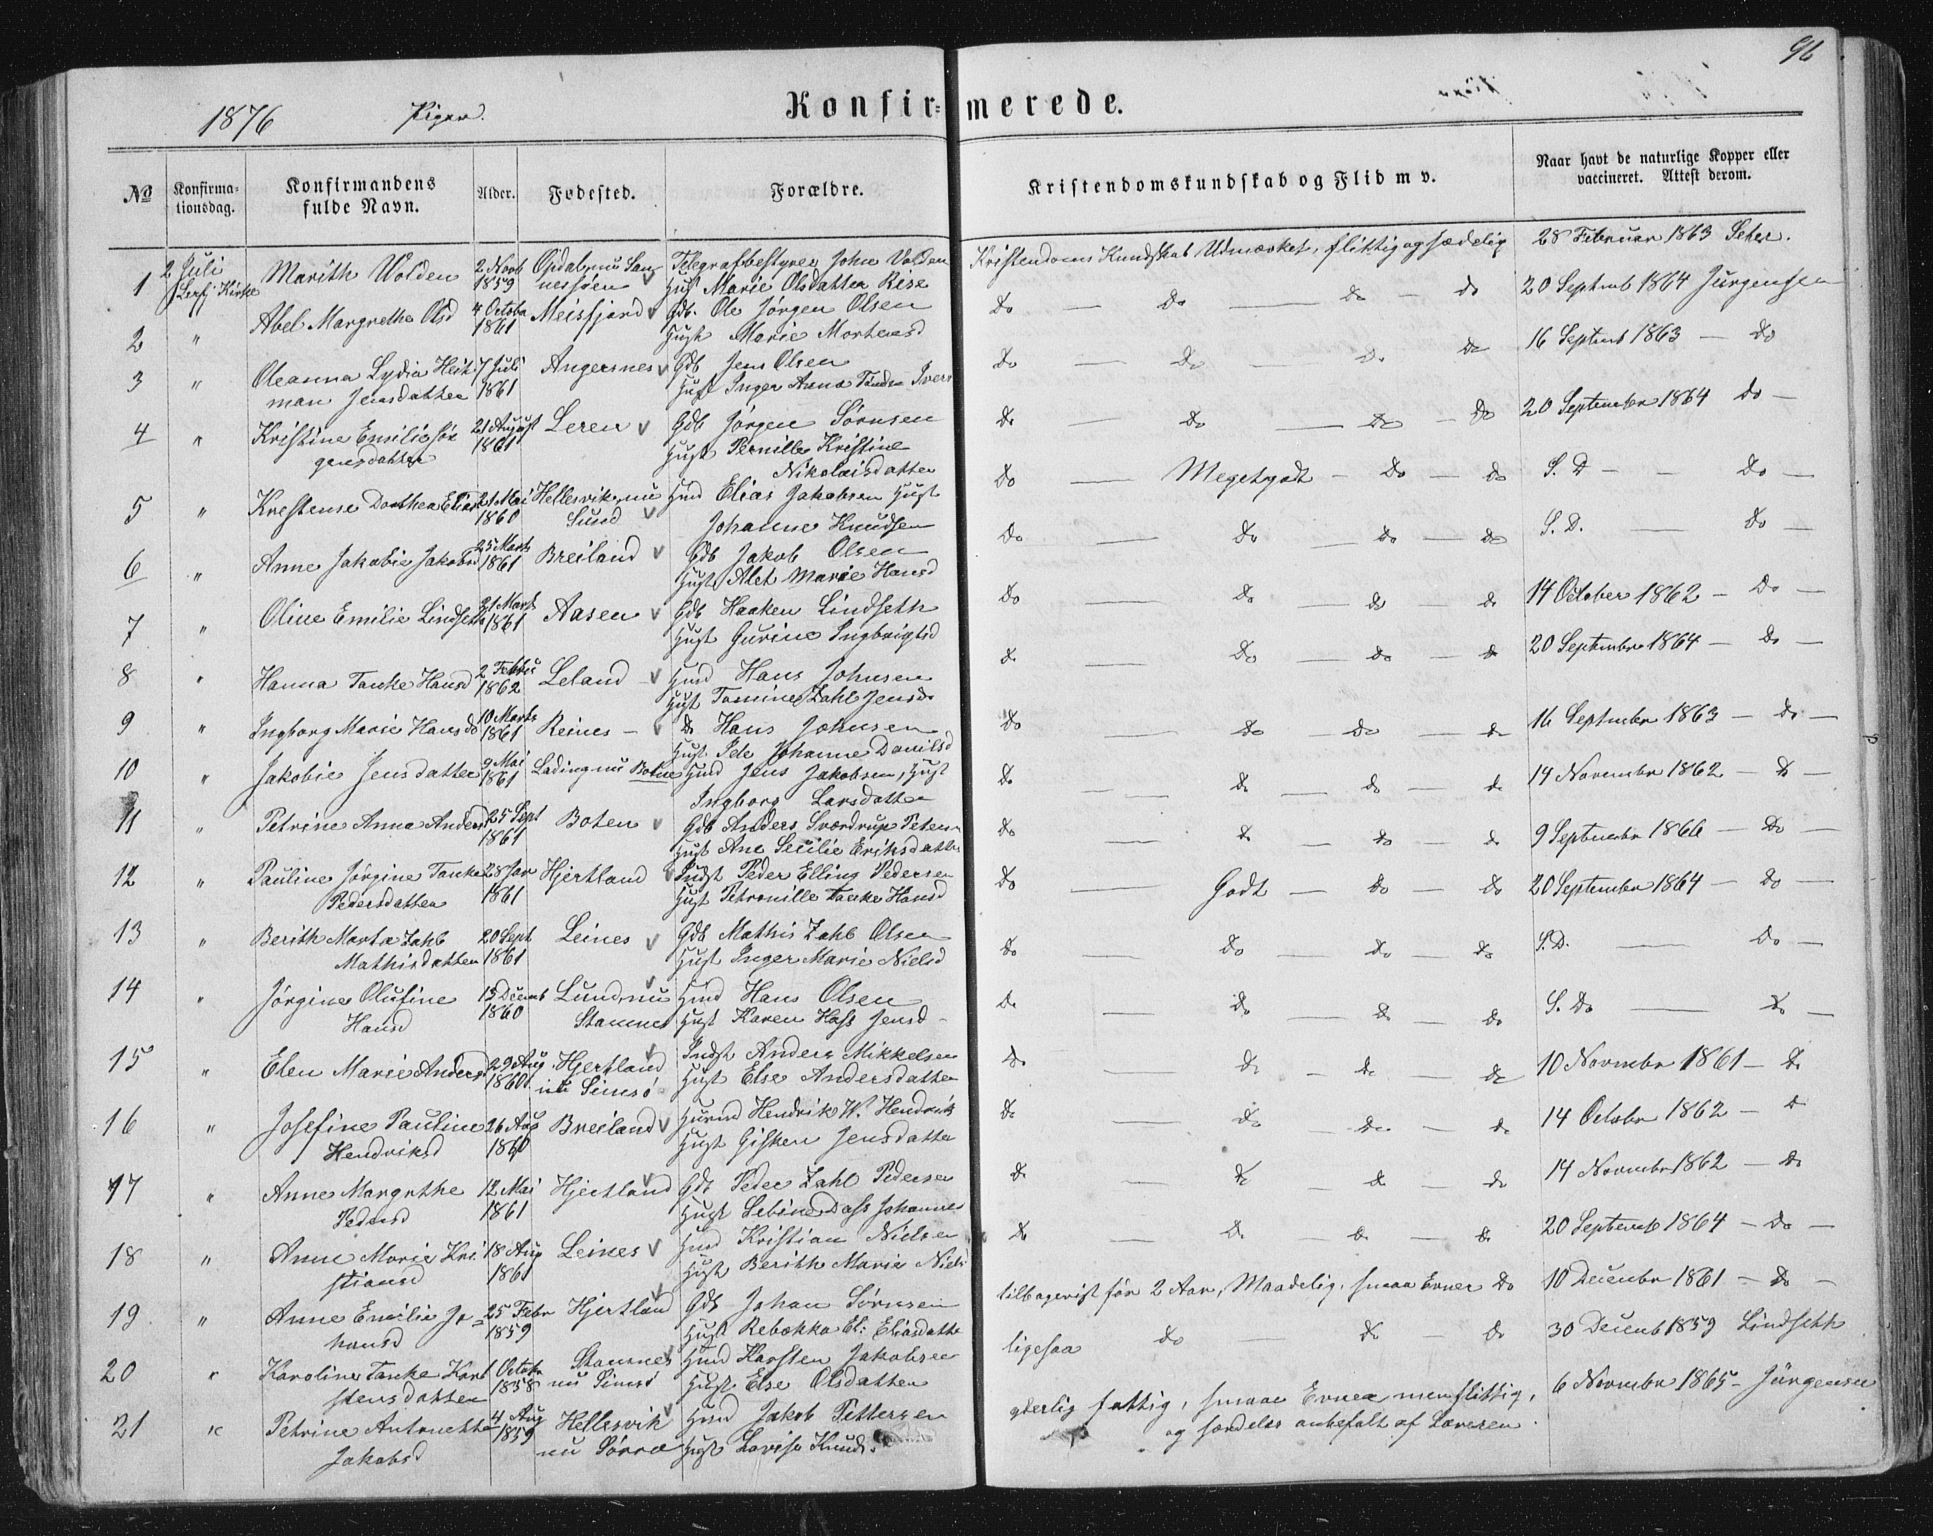 96
1876 Piger.
Konfirmerede.
No
Konfirmationsdag.
Konfirmandens fulde Navn.
Alder.
Fødested.
Forældre.
Kristendomskundskab og Flid m v.
Naar havt de naturlige Kopper eller vaccineret. Attest derom.
1 2 Juli Kirke Marith Volden 2 Novb 1859 Opdal, nu Sannessøen Telegrafbestyrer John Volden Hust Marie Olsdatter Rise Kristendoms Kundskab Udmærket, flittig og sædelig 28 Februar 1863
2 " Abel Margrethe Olsd 4 Octobr 1861 Meisfjord Gdb. Ole Jørgen Olsen Hust Marie Mortensd Do — Do — Do — Do 20 Septemb 1864 Jürgensen
3 " Oleanna Lydia Heitman Jensdatter 7 Juli 1861 Angersnes Gdb Jens Olsen Hust Inger Anna Tønder Ivers Do — Do — Do Do 16 Septemb 1863 — Do
4 " Kristine Emilie Jørgensdatter 21 August 1861 Leren Gdb Jørgen Sørnsen Hust Pernille Kristine Nikolaisdatter Do Do — Do — Do 20 September 1864 Do —
5 " Krestense Dorthea Elias 21 Mai 1860 Hellesvik, nu Sund Hmd Elias Jakobsen Hust Johanne Knudsen Do — Megetgodt — Do — Do S. D — — Do —
6 " Anne Jakobie Jakobsd 25 Marts 1861 Breiland Gdb Jakob Olsen Hust Alet Marie Hansd Do — Do — Do — Do S. D. — Do —
7 " Oline Emilie Lindseth 21 Marts 1861 Aasen Gdb Haaken Lindseth Hust Gurine Ingbrigtsd Do — Do — Do Do 14 October 1862 — Do —
8 " Hanna Tanke Hansd 2 Febru 1862 Leland Hmd Hans Johnsen Hust Tomine Zahl Jensd Do — Do — Do — Do 20 September 1864 — Do —
9 " Ingborg Marie Hansd 10 Marts 1861 Reines — Do Hans Johnsen Hust Johanne Danilsd Do — Do — Do — Do 16 Septembr 1863 — Do —
10 " Jakobie Jensdatter 9 Mai 1861 Lading nu Boten Hmd Jens Jakobsen, Hust Ingborg Larsdatter Do — — Do — Do — Do 14 November 1862 — Do —
11 " Petrine Anna Andersd 25 Sept 1861 Boten Gdb Anders Sværdrup Petersen Hust Ane Secilie Eriksdatter Do Do — Do — Do 9 September 1866 — Do —
12 " Pauline Jørgine Tanke Pedersdatter 28 Jan 1861 Hjertland Indst Peder Elling Pedersen Hust Petronille Tanke Hansd Do — Godt — Do — Do 20 September 1864 — Do —
13 " Berith Marta Zahl Mathisdatter 20 Sept 1861 Leines Gdb Mathis Zahl Olsen Hust Inger Marie Nielsd Do — Do — Do — Do S.D. — Do —
14 " Jørgine Olufine Hansd 13 Decemb 1860 Lund, nu Stamnes Hmd Hans Olsen Hust Karen Hass Jensd — Do — Do — Do — Do S. Do — Do —
15 " Elen Marie Andersd 29 Aug 1860 Hjertland nu Simsø Indst Anders Mikkelsen Hust Else Andersdatter Do — Do — Do — Do 10 November 1861 — Do
16 " Josefine Pauline Hendriksd 26 Aug 1860 Breiland Hendrik W. Hendrik Hust Gisken Jensdatter Do — Do Do — Do 14 October 1862 — Do
17 " Anne Margrethe Pedersd 12 Mai 1861 Hjertland Gdb Peder Zahl Pedersen Hust Sebine Dass Johannes Do Do — Do — Do 14 November 1862 — Do
18 " Anne Marie Kristiansd 18 Aug 1861 Leines Hmd Kristian Nielsen Hust Berith Marie Niels Do — Do — Do — Do 20 Septemb 1864 — Do —
19 " Anne Emilie Johansd 25 Febr 1859 Hjertland Gdb Johan Sørnsen Hust Rebekka El: Eliasdatter tilbagevist før 2 Aar, Maadelig, smaa Evner Do 10 December 1861 — Do —
20 " Karoline Tanke Karstensdatter Octobr 1858 Stamnes nu Simsø Hmd Karsten Jakobsen Hust Else Olsdatter ligesaa Do — Do — Do 30 Decemb 1859 Lindseth
21 " Petrine Antonette Jakobsd 4 Aug 1859 Hellesvik nu Sørra Hmd Jakob Pettersen Hust Lovise Knuds. yderlig fattig, smaa Evner men flittig, og særdeles anbefalt af Læreren. 6 November 1865 — Jürgensen